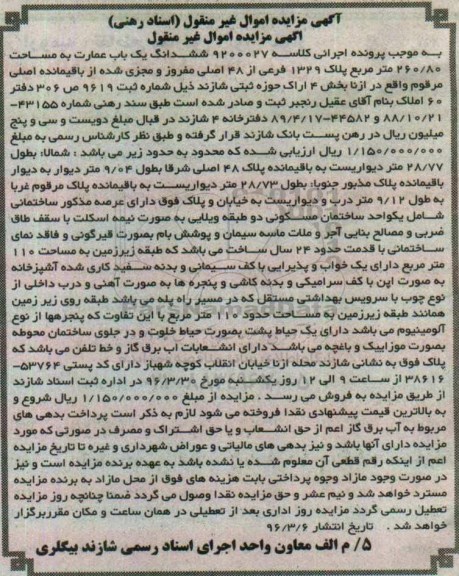 آگهی مزایده اموال غیر منقول (اسناد رهنی)
آگهی مزایده اموال غیر منقول
به موجب پرونده اجرائی کلاسه ۹۲۰۰۰۲۷ ششدانگ یک باب عمارت به مساحت
۲۶۰/۸۰ متر مربع پلاک ۱۳۲۹ فرعی از ۴۸ اصلی مفروز و مجزی شده از باقیمانده اصلی
مرقوم واقع در ازنا بخش ۴ اراک حوزه ثبتی شازند ذیل شماره ثبت ۹۶۱۹ ص ۳۰۶ دفتر
۶۰ املاک بنام آقای عقیل رنجبر ثبت و صادر شده است طبق سند رهنی شماره ۴۳۱۵۵-
۸۸/۱۰/۲۱ و ۴۴۵۸۲-۸۹/۴/۱۷ دفترخانه ۴ شازند در قبال مبلغ دویست و سی و پنج
میلیون ریال در رهن پست بانک شازند قرار گرفته و طبق نظر کارشناس رسمی به مبلغ
۱/۱۵۰/۰۰۰/۰۰۰ ریال ارزیابی شده که محدود به حدود زیر می باشد : شمالا: بطول
۲۸/۷۷ متر دیواریست به باقیمانده پلاک ۴۸ اصلی شرقا بطول ۹/۰۴ متر دیوار به دیوار
باقیمانده پلاک مذبور جنوبا: بطول ۲۸/۷۲ متر دیواریست به باقیمانده پلاک مرقوم غربا
به طول ۹/۱۲ متر درب و دیواریست به خیابان و پلاک فوق دارای عرصه مذکور ساختمانی
شامل یکواحد ساختمان مسکونی دو طبقه ویلایی به صورت نیمه اسکلت با سقف طاق
ضربی و مصالح بنایی آجر و ملات ماسه سیمان و پوشش بام بصورت قیرگونی و فاقد نمای
ساختمانی با قدمت حدود ۲۴ سال ساخت می باشد که طبقه زیرزمین به مساحت ۱۱۰
متر مربع دارای یک خواب و پذیرایی با کف سیمانی و بدنه سفید کاری شده آشپزخانه
به صورت اپن با کف سرامیکی و بدنه کاشی و پنجره ها به صورت آهنی و درب داخلی از
نوع چوب با سرویس بهداشتی مستقل که در مسیر راه پله می باشد طبقه روی زیر زمین
همانند طبقه زیرزمین به مساحت حدود ۱۱۰ متر مربع با این تفاوت که پنجرهها از نوع
آلومینیوم می باشد دارای یک حیاط پشت بصورت حیاط خلوت و در جلوی ساختمان محوطه
بصورت موزاییک و باغچه می باشد دارای انشعابات آب برق گاز و خط تلفن می باشد که
پلاک فوق به نشانی شازند محله ازنا خیابان انقلاب کوچه شهباز دارای کد پستی ۵۳۷۶۴-
۳۸۶۱۶ از ساعت ۹ الی ۱۲ روز یکشنبه مورخ ۹۶/۳/۳۰ در اداره ثبت اسناد شازند
از طریق مزایده به فروش می رسد . مزایده از مبلغ ۱/۱۵۰/۰۰۰/۰۰۰ ریال شروع و
به بالاترین قیمت پیشنهادی نقدا فروخته می شود لازم به ذکر است پرداخت بدهی های
مربوط به آب برق گاز اعم از حق انشعاب و یا حق اشتراک و مصرف در صورتی که مورد
مزایده دارای آنها باشد و نیز بدهی های مالیاتی و عوراض شهرداری و غیره تا تاریخ مزایده
اعم از اینکه رقم قطعی آن معلوم شده یا نشده باشد به عهده برنده مزایده است و نیز
در صورت وجود مازاد وجوه پرداختی بابت هزینه های فوق از محل مازاد به برنده مزایده
مسترد خواهد شد و نیم عشر و حق مزایده نقدا وصول می گردد ضمنا چنانچه روز مزایده
تعطیل رسمی گردد مزایده روز اداری بعد از تعطیلی در همان ساعت و مکان مقرر برگزار
خواهد شد . تاریخ انتشار ۹۶/۳/۶
۵/ م الف معاون واحد اجرای اسناد رسمی شازند بیگلری